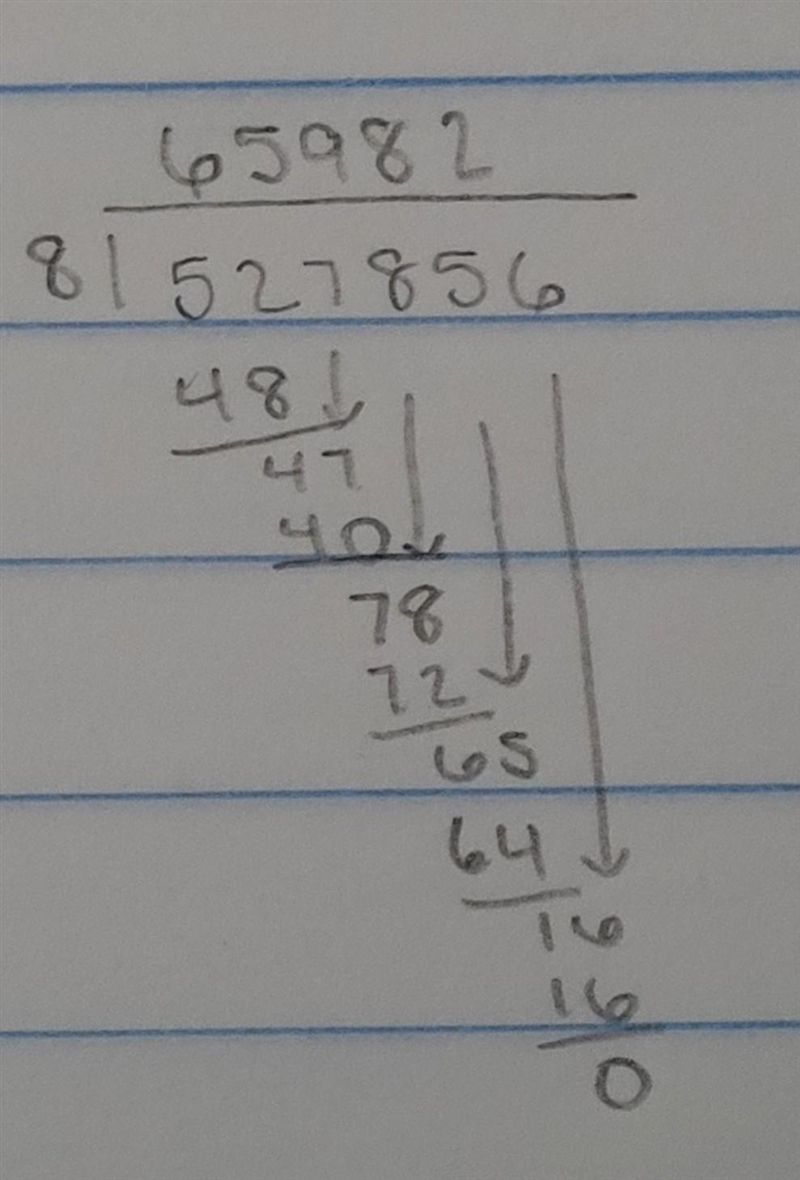 65982
8 527856
48
47
40
78
72
65
64
16
16
0